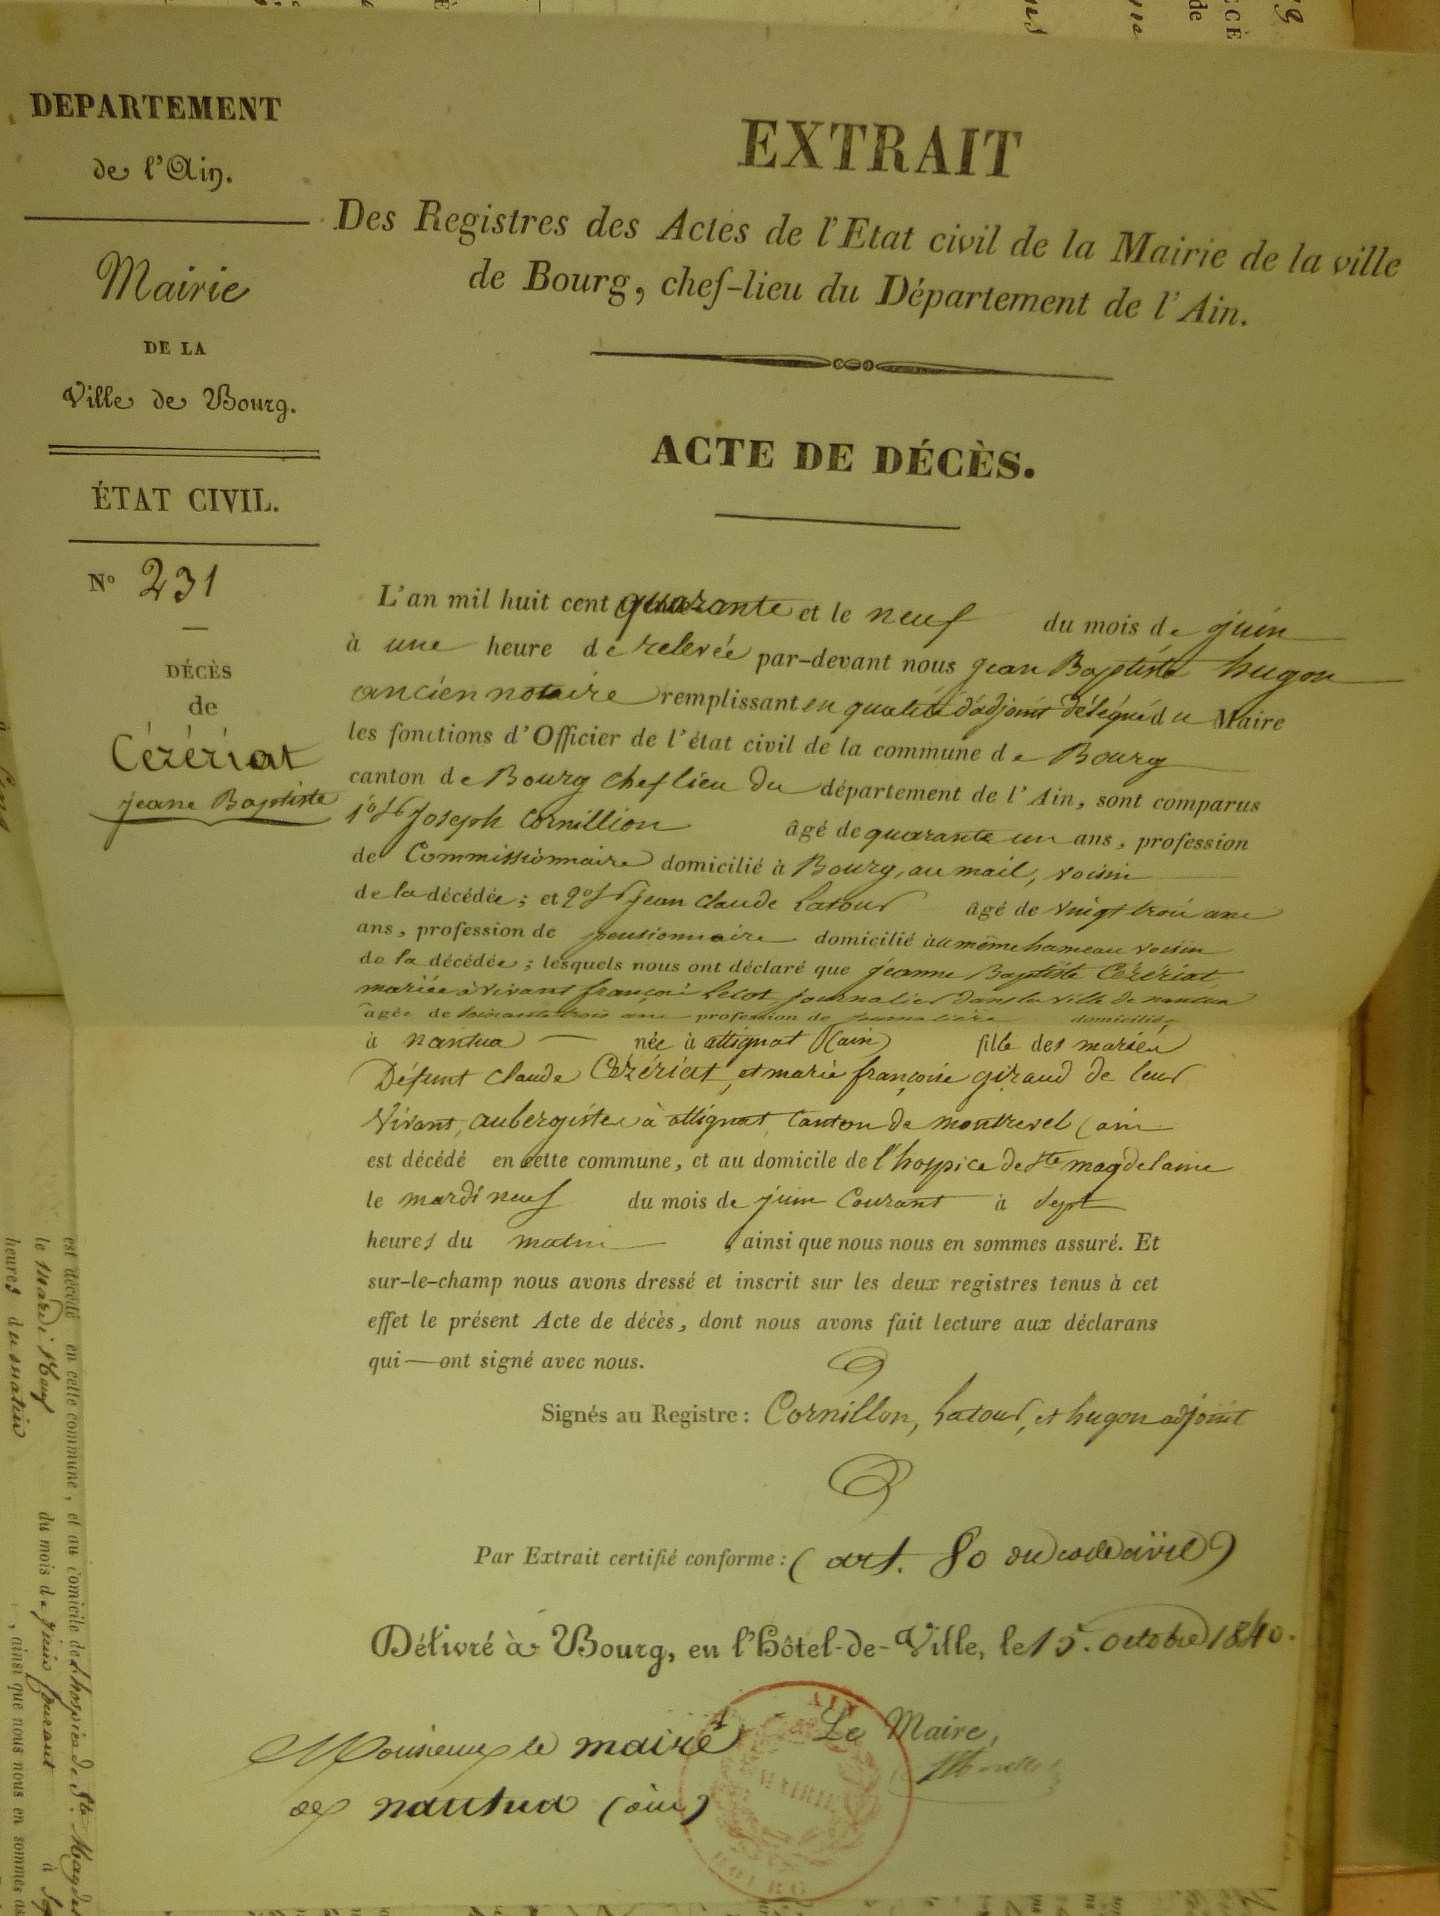 DEPARTEMENT
de l'Ain.
Mairie
DE LA
Ville de Bourg.
ÉTAT CIVIL.
N° 231
DÉCÈS
de
Cézériat
jeane Baptiste
EXTRAIT
Des Registres des Actes de l'Etat civil de la Mairie de la ville
de Bourg, chef-lieu du Département de l'Ain.
ACTE DE DÉCÈS.
L'an mil huit cent quarante et le neuf du mois de juin
à une heure de relevée par-devant nous jean Baptiste hugon
ancien notaire remplissant en qualité d'adjoint délégué du Maire
les fonctions d'Officier de l'état civil de la commune de Bourg
canton de Bourg chef lieu du département de l'Ain, sont comparus
1° Sr Joseph Cornillion âgé de quarante un ans, profession
de Commissionnaire domicilié à Bourg, au mail, voisin
de la décédée; et 2° Sr jean claude Latour âgé de vingt trois ans
ans, profession de pensionnaire domicilié au même hameau voisin
de la décédée; lesquels nous ont déclaré que jeanne Baptiste Cézériat
mariée à vivant françois Lecot journalier dans la ville de nantua
âgée de soixante trois ans profession de journalière domiciliée
à nantua née à attignat (ain) fille des mariés
Défunt claude Cézériat, et marie françoise giraud de leur
vivant, aubergistes à attignat, canton de montrevel (ain
est décédé en cette commune, et au domicile de l'hospice de Ste magdelaine
le mardi neuf du mois de juin Courant à sept
heures du matin, ainsi que nous nous en sommes assuré. Et
sur-le-champ nous avons dressé et inscrit sur les deux registres tenus à cet
effet le présent Acte de décès, dont nous avons fait lecture aux déclarans
qui — ont signé avec nous.
Signés au Registre: Cornillon, Latour, et hugon adjoint
Par Extrait certifié conforme: (art. 80 du code civil)
Délivré à Bourg, en l'Hôtel-de-Ville, le 15. octobre 1840.
Le Maire,
Monsieur le maire
de nantua (ain)
AIN
MAIRIE
BOURG
est décédé en cette commune, et au domicile de l'hospice de Ste Magdel
le mardi neuf du mois de juin Courant à Sep
heures du matin, ainsi que nous nous en sommes as